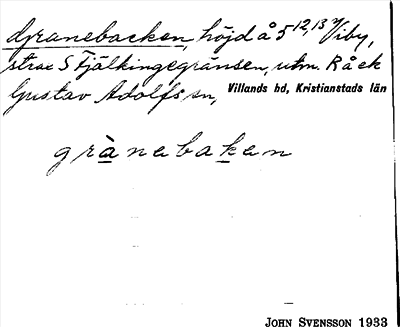 Granebacken, höjd å 5 12,13 Viby,
strax S Fjälkingegränsen, utm. Råek
Gustav Adolfs sn, Villands hd, Kristianstads län
grànebaken
JOHN SVENSSON 1933